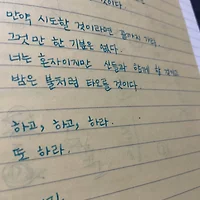 것이다.
만약 시도할 것이라면 끝까지 가라.
그것만 한 기분은 없다.
너는 혼자이지만 신들과 함께 할 것이고
밤은 불처럼 타오를 것이다.
하고, 하고, 하라.
또 하라.